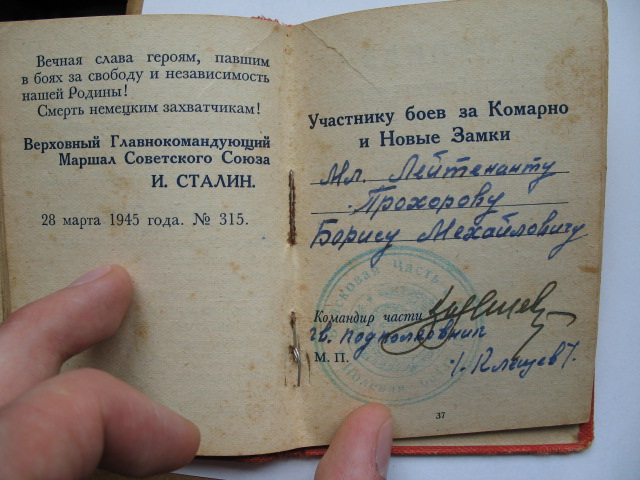 Вечная слава героям, павшим
в боях за свободу и независимость
нашей Родины!
Смерть немецким захватчикам!
Верховный Главнокомандующий
Маршал Советского Союза
И. СТАЛИН.
28 марта 1945 года. № 315.
Участнику боев за Комарно
и Новые Замки
Мл. Лейтенанту
Прохорову
Борису Михайловичу
Командир части
гв. подполковник
М. П.
/Клищев/
37